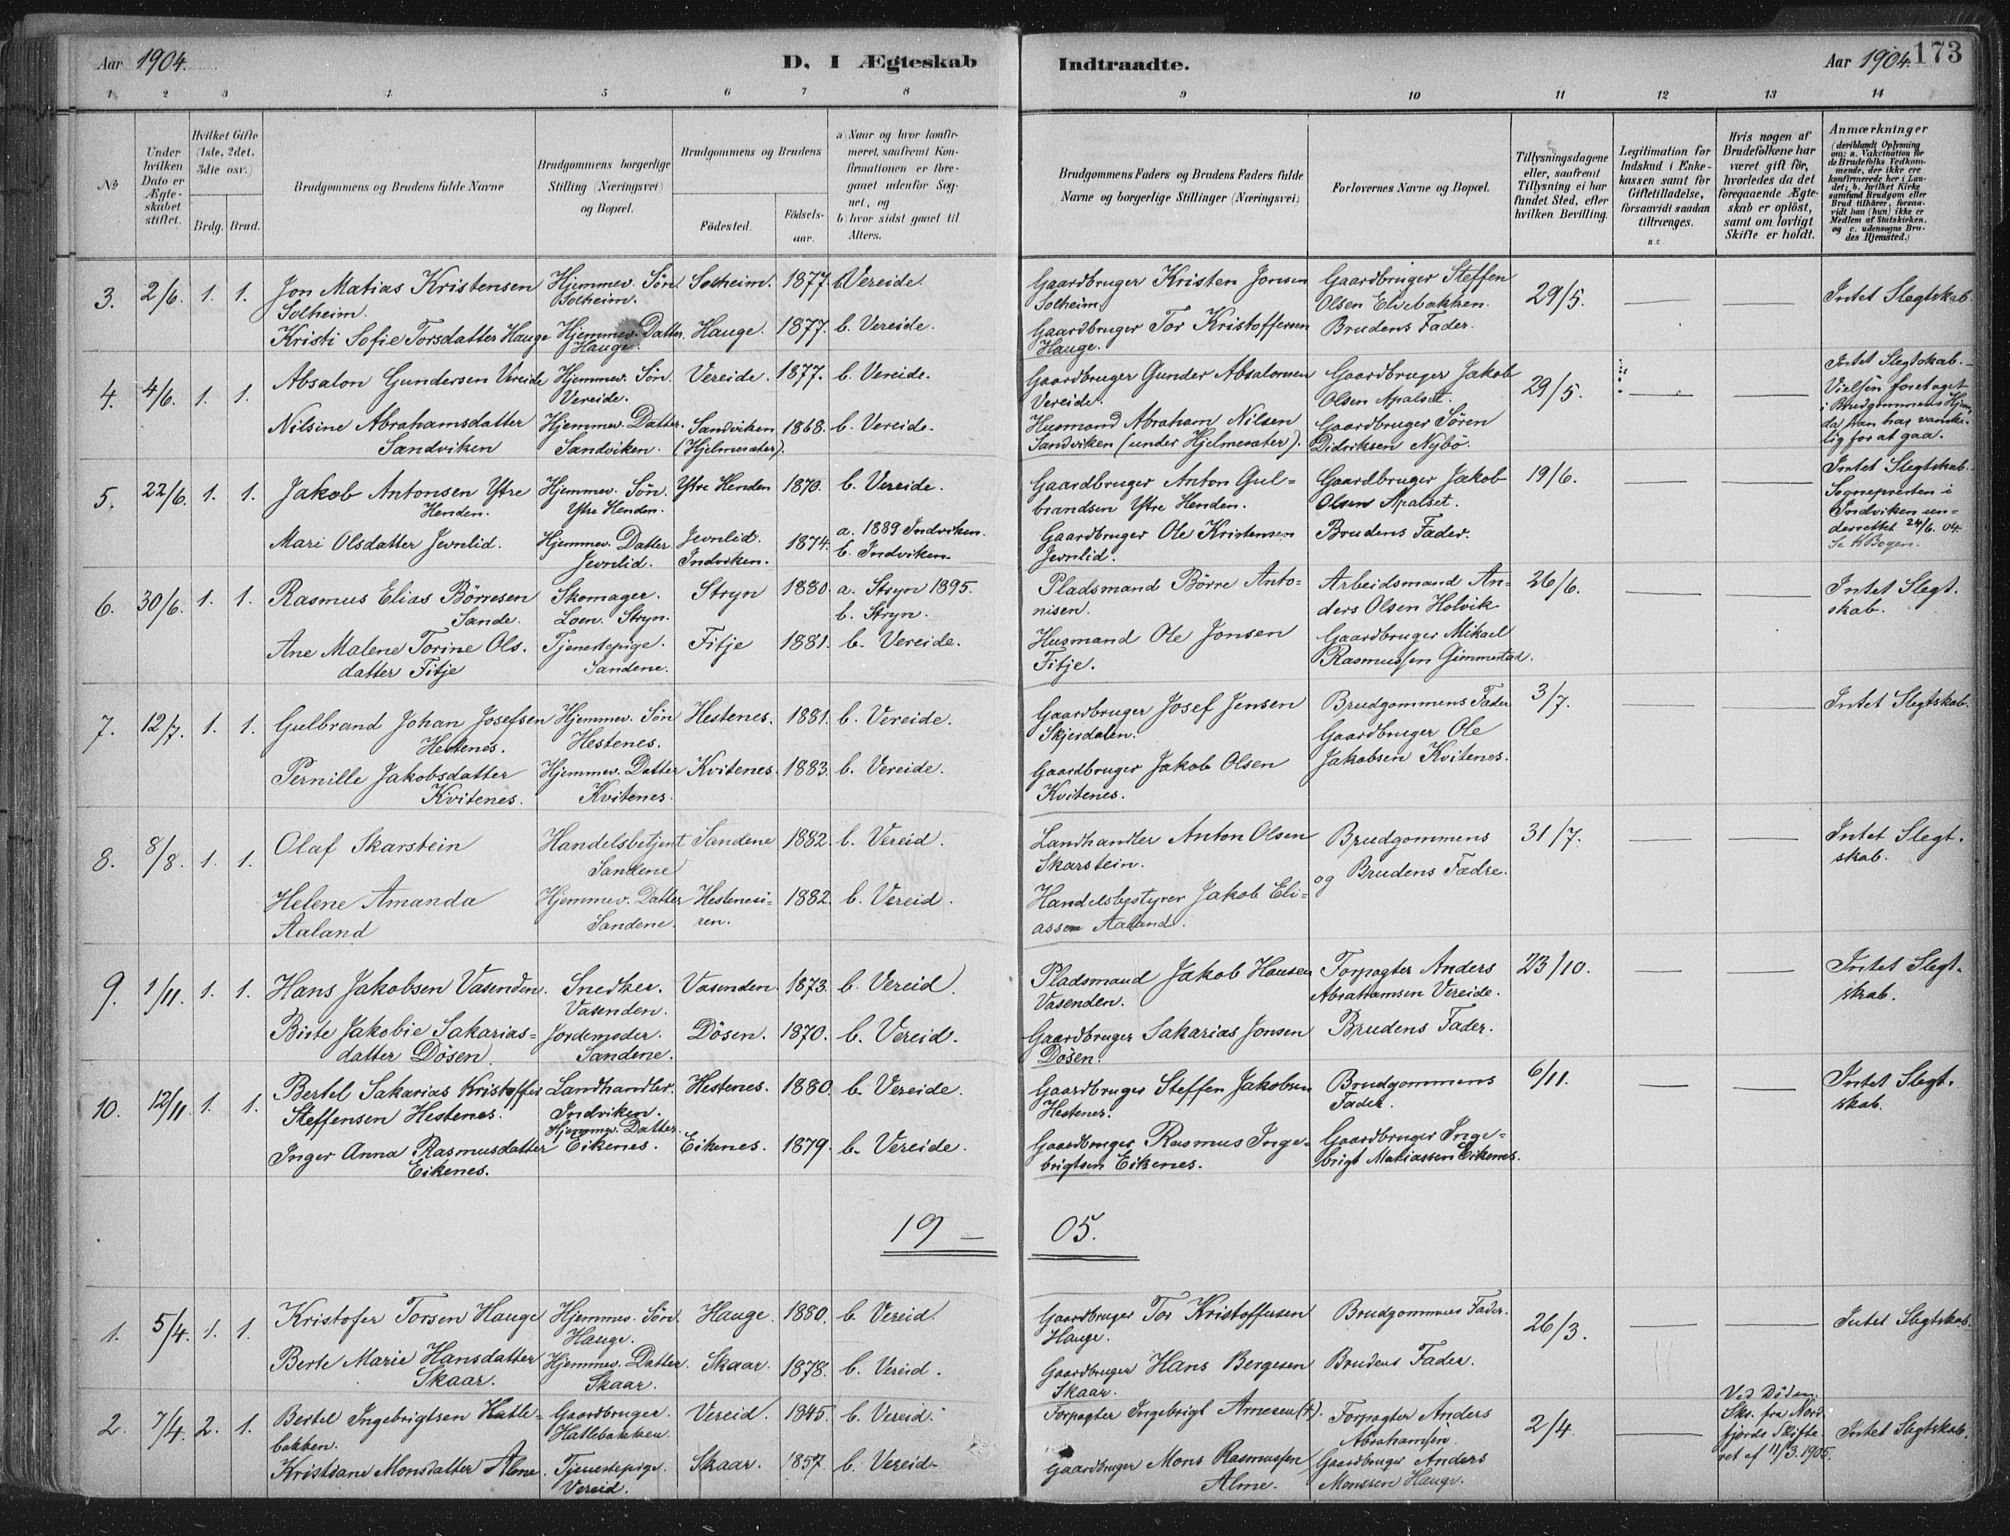 Aar 1904.
D. I Ægteskab
Indtraadte.
Aar 1904. 173
1 2 3 4 5 6 7 8 9 10 11 12 13 14
No
Under hvilken Dato er Ægteskabet stiftet.
Hvilket Gifte (1ste, 2det, 3die osv.)
Brdg. Brud.
Brudgommens og Brudens fulde Navne
Brudgommens borgerlige Stilling (Næringsvei) og Bopæl.
Brudgommens og Brudens
Födested.
Födselsaar.
a) Naar og hvor konfirmeret, saafremt Konfirmationen er foregaaet udenfor Sognet, og
b) hvor sidst gaaet til Alters.
Brudgommens Faders og Brudens Faders fulde Navne og borgerlige Stillinger (Næringsvei)
Forlovernes Navne og Bopæl.
Tillysningsdagene eller, saafremt Tillysning ei har fundet Sted, efter hvilken Bevilling.
Legitimation for Indskud i Enkekassen samt for Giftetilladelse, forsaavidt saadan tiltrænges.
Hvis nogen af Brudefolkene har været gift för, hvorledes da det foregaaende Ægteskab er oplöst, samt om lovligt Skifte er holdt.
Anmærkninger (deriblandt Oplysning om: a. Vakcination for de Brudefolks Vedkommende, der ikke ere konfirmerede her i Landet; b. hvilket Kirkesamfund Brudgom eller Brud tilhører, forsaavidt han (hun) ikke er Medlem af Statskirken, og c. udensogns Brudes Hjemsted.)
3. 2/6. 1. 1. Jon Matias Kristensen Solheim. Hjemmev. Søn Solheim. Solheim. 1877. b. Vereide. Gaardbruger Kristen Jonsen Solheim. Gaardbruger Steffen Olsen Elvebakken. 29/5. Intet Slegtskab.
Kristi Sofie Torsdatter Hauge Hjemmev. Datter Hauge. Hauge. 1877. b. Vereide. Gaardbruger Tor Kristoffersen Hauge. Brudens Fader.
4. 4/6. 1. 1. Absalon Gundersen Vereide Hjemmev. Søn. Vereide. Vereide. 1877. b. Vereide. Gaardbruger Gunder Absalonsen Vereide. Gaardbruger Jakob Olsen Apalset. 29/5. Intet Slegtskab. Vielsen foretaget i Brudgommens Hjem, da han har vanskelig for at gaa.
Nilsine Abrahamsdatter Sandviken Hjemmev. Datter. Sandviken. Sandviken (Hjelmesæter). 1868. b. Vereide. Husmand Abraham Nilsen Sandviken (under Hjelmesæter). Gaardbruger Søren Didriksen Nybö.
5. 22/6. 1. 1. Jakob Antonsen Ytre Henden. Hjemmev. Søn. Ytre Henden. Ytre Henden 1870. b. Vereide. Gaardbruger Anton Gulbrandsen Ytre Henden. Gaardbruger Jakob Olsen Apalset. 19/6. Intet Slegtskab. Sognepresten i Indviken underrettet 24/6. 04. Se K Bogen.
Mari Olsdatter Jevnlid. Hjemmev. Datter Jevnlid. Jevnlid. Indviken. 1874. a. 1889 Indviken. b. Indviken. Gaardbruger Ole Kristensen Jevnlid. Brudens Fader.
6. 30/6. 1. 1. Rasmus Elias Börresen Sande. Skomager. Loen. Stryn. Stryn 1880. a. Stryn 1895. b. Stryn. Pladsmand Börre Antonisen. Arbeidsmand Anders Olsen Holvik 26/6. Intet Slegtskab.
Ane Malene Torine Olsdatter Fitje Tjenestepige. Sandene. Fitje 1881. b. Vereide. Husmand Ole Jonsen Fitje. Gaardbruger Mikael Rasmussen Gimmestad.
7. 12/7. 1. 1. Gulbrand Johan Josefsen Hestenes. Hjemmev. Søn Hestenes. Hestenes. 1881. b. Vereide. Gaardbruger Josef Jensen Skjerdalen. Brudgommens Fader 3/7. Intet Slegtskab.
Pernille Jakobsdatter Kvitenes. Hjemmev. Datter Kvitenes. Kvitenes. 1883. b. Vereide. Gaardbruger Jakob Olsen Kvitenes. Gaardbruger Ole Jakobsen Kvitenes.
8. 8/8. 1. 1. Olaf Skarstein Handelsbetjent Sandene Sandene 1882. b. Vereid. Landhandler Anton Olsen Skarstein. Brudgommens og Brudens Fædre. 31/7. Intet Slegtskab.
Helene Amanda Aaland Hjemmev. Datter Sandene. Hestenesören. 1882. b. Vereid. Handelsbestyrer Jakob Eliassen Aaland.
9. 1/11. 1. 1. Hans Jakobsen Vasenden. Snedker. Vasenden. Vasenden. 1873. b. Vereid. Pladsmand Jakob Hansen Vasenden. Forpagter Anders Abrahamsen Vereide. 23/10. Intet Slegtskab.
Birte Jakobie Sakariasdatter Dösen. Jordemoder. Sandene. Dösen. 1870. b. Vereid. Gaardbruger Sakarias Jonsen Dösen. Brudens Fader.
10. 12/11. 1. 1. Bertel Sakarias Kristoffer Steffensen Hestenes. Landhandler. Indviken. Hestenes. 1880. b. Vereide. Gaardbruger Steffen Jakobsen Hestenes. Brudgommens Fader. 6/11. Intet Slegtskab.
Inger Anna Rasmusdatter Eikenes. Hjemmev. Datter. Eikenes. Eikenes. 1879. b. Vereide. Gaardbruger Rasmus Ingebrigtsen Eikenes. Gaardbruger Ingebrigt Matiassen Eikenes.
19 — 05.
1. 5/4. 1. 1. Kristofer Torsen Hauge Hjemmev. Sön. Hauge. Hauge. 1880. b. Vereid. Gaardbruger Tor Kristoffersen Hauge. Brudgommens Fader. 26/3. Intet Slegtskab.
Berte Marie Hansdatter Skaar. Hjemmev. Datter. Skaar. Skaar. 1878. b. Vereid. Gaardbruger Hans Bergesen Skaar. Brudens Fader.
2. 7/4. 2. 1. Bertel Ingebrigtsen Hatlebakken. Gaardbruger. Hatlebakken. Vereid. 1845. b. Vereid. Forpagter Ingebrigt Arnesen (†). Forpagter Anders Abrahamsen. 2/4. Ved Døden. Sks. fra Nordfjords Skifteret af 11/3. 1905. Intet Slegtskab.
Kristiane Monsdatter Alme. Tjenestepige. Vereid. Skaar. 1857. b. Vereid. Gaardbruger Mons Rasmussen Alme. Gaardbruger Anders Monssen Hauge.